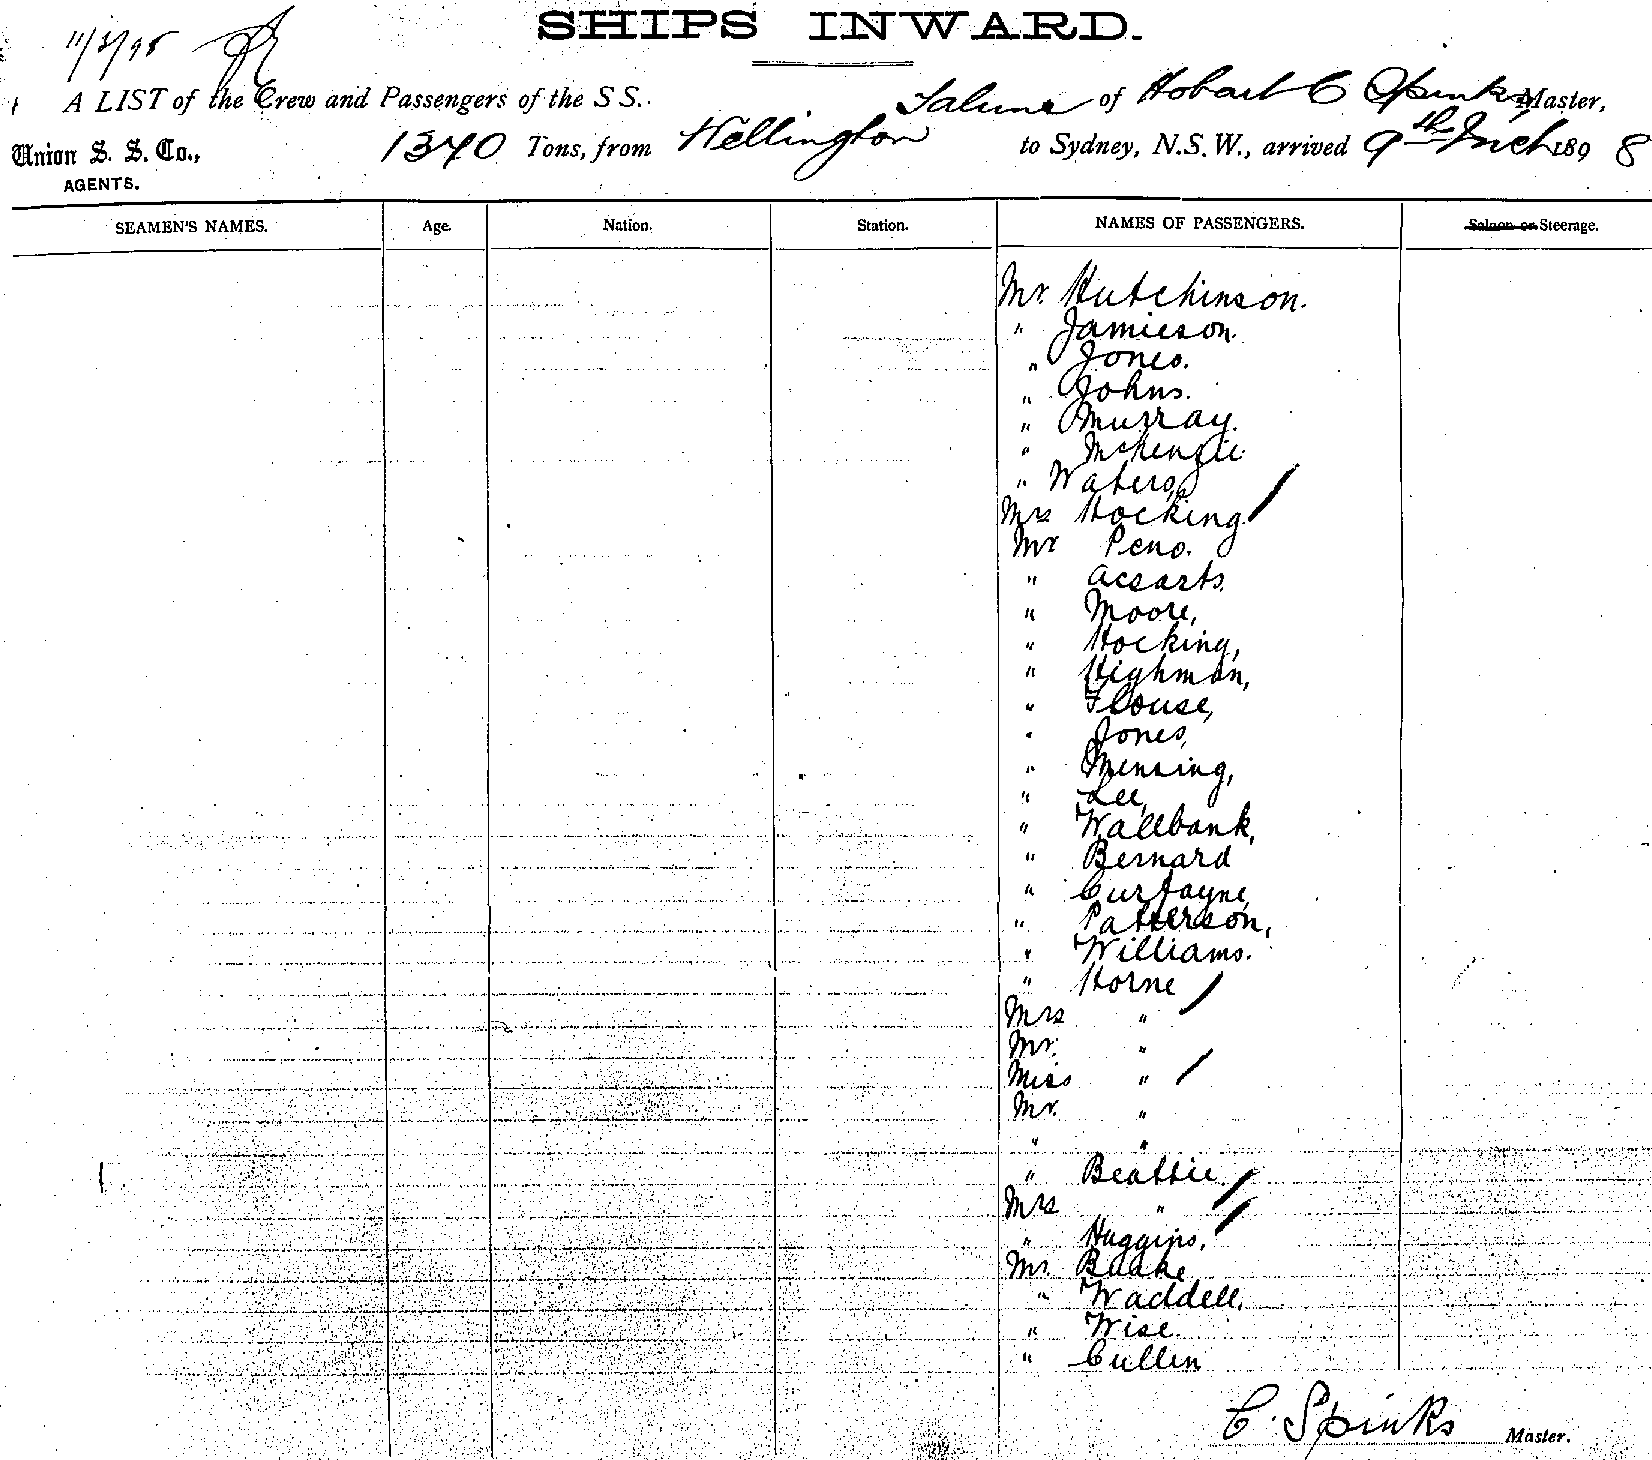 SHIPS INWARD.
11/3/98
A LIST of the Crew and Passengers of the S S. Talune of Hobart C Spinks Master,
Union S. S. Co., 1370 Tons, from Wellington to Sydney, N.S.W., arrived 9th Mch 1898
AGENTS.
SEAMEN'S NAMES. Age. Nation. Station. NAMES OF PASSENGERS. Saloon or Steerage.
Mr. Hutchinson.
" Jamieson.
" Jones.
" Johns.
" Murray.
" McKenzie
" Waters,
Mrs Hocking
Mr Peno.
" Acsarts.
" Moore,
" Hocking,
" Highman,
" Flouse,
" Jones,
" Mensing,
" Lee,
" Wallbank,
" Bernard
" Curtayne,
" Patterson,
" Williams.
" Horne
Mrs "
Mr. "
Miss "
Mr. "
" "
" Beattie
Mrs "
" Huggins,
Mr. Baake
" Waddell.
" Wise.
" Cullin
C. Spinks Master.